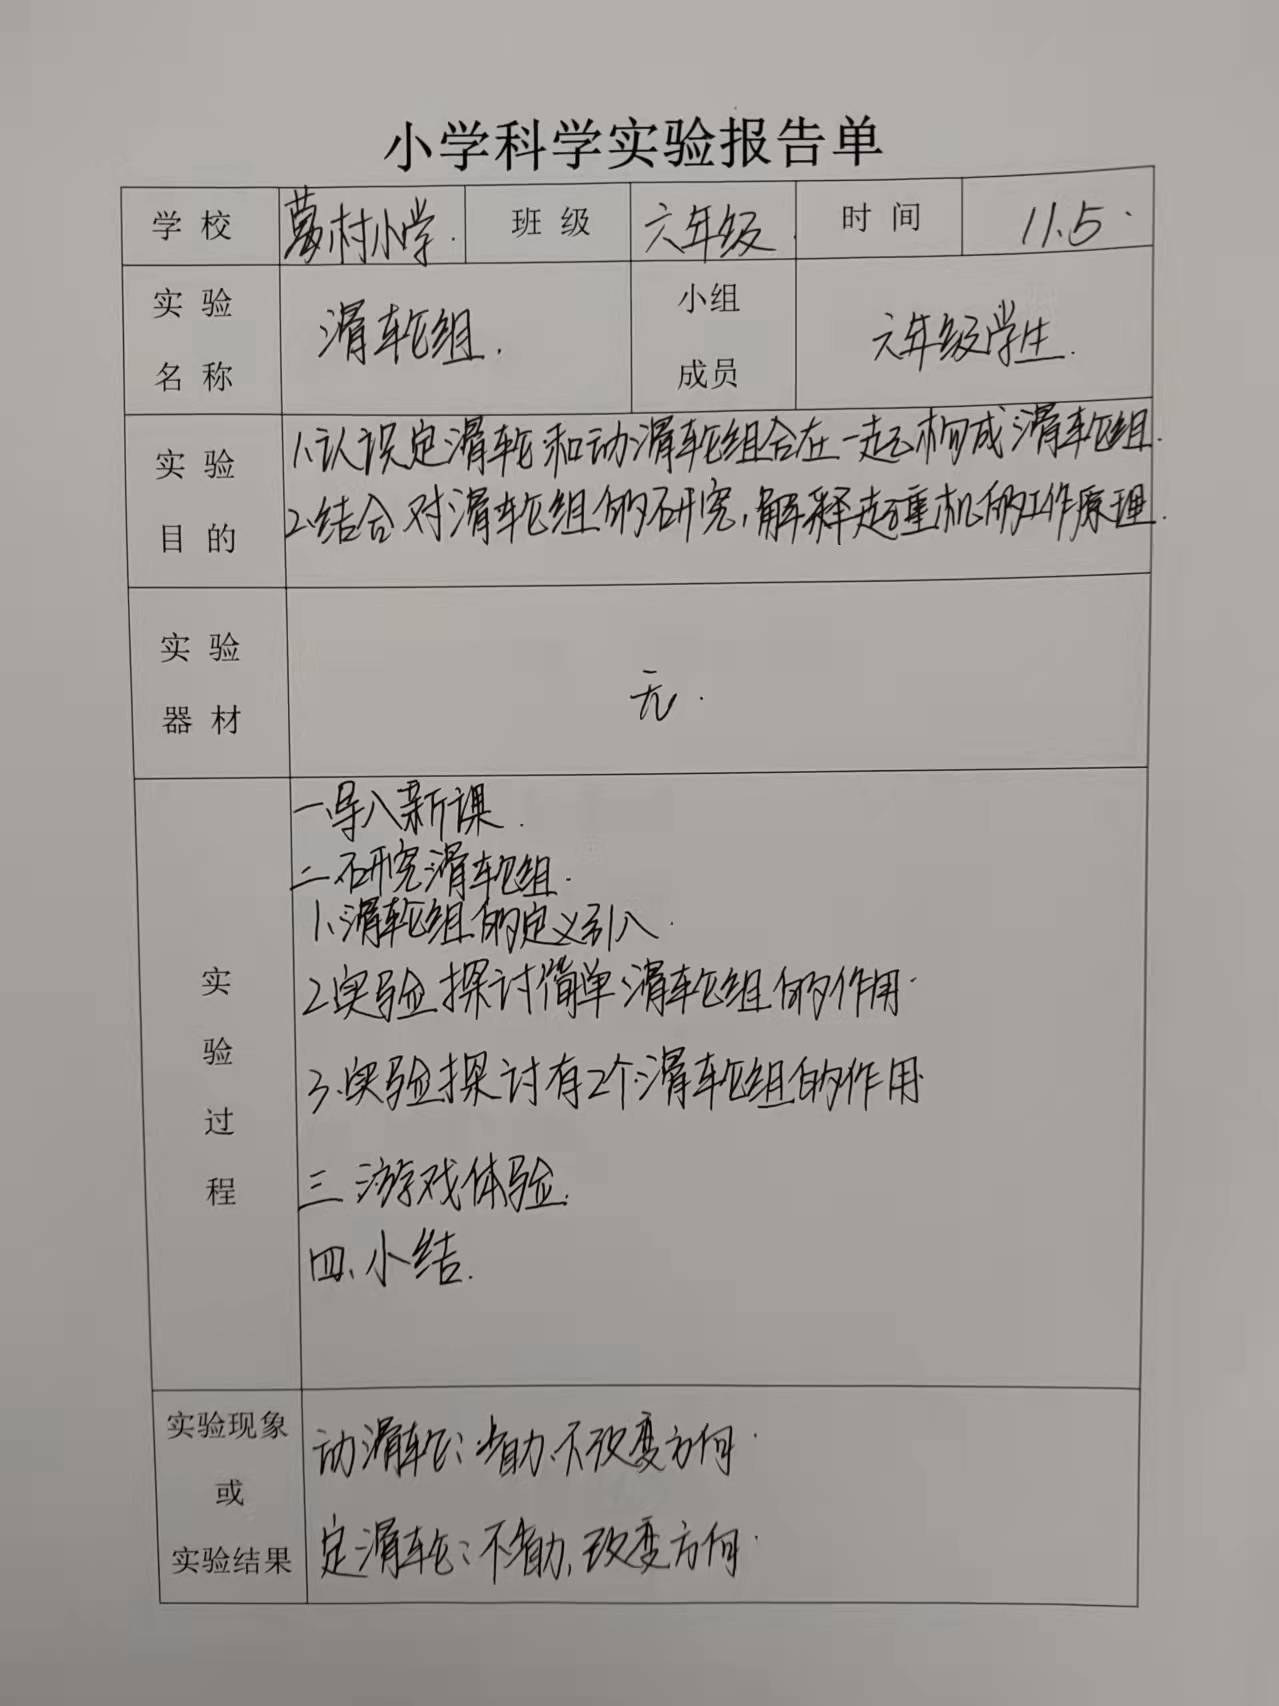 小学科学实验报告单
学校 村小学. 班级 六年级. 时间 11.5.
实验 小组
名称 成员
滑轮组. 六年级学生.
实验
目的
1.认识定滑轮和动滑轮组合在一起构成滑轮组.
2.结合对滑轮组的研究,解释起重机的工作原理.
实验
器材
无.
实
验
过
程
一、导入新课.
二、研究滑轮组.
1、滑轮组的定义引入.
2、实验探讨简单滑轮组的作用.
3、实验探讨有2个滑轮组的作用.
三、游戏体验.
四、小结.
实验现象
或
实验结果
动滑轮:省力、不改变方向.
定滑轮:不省力,改变方向.